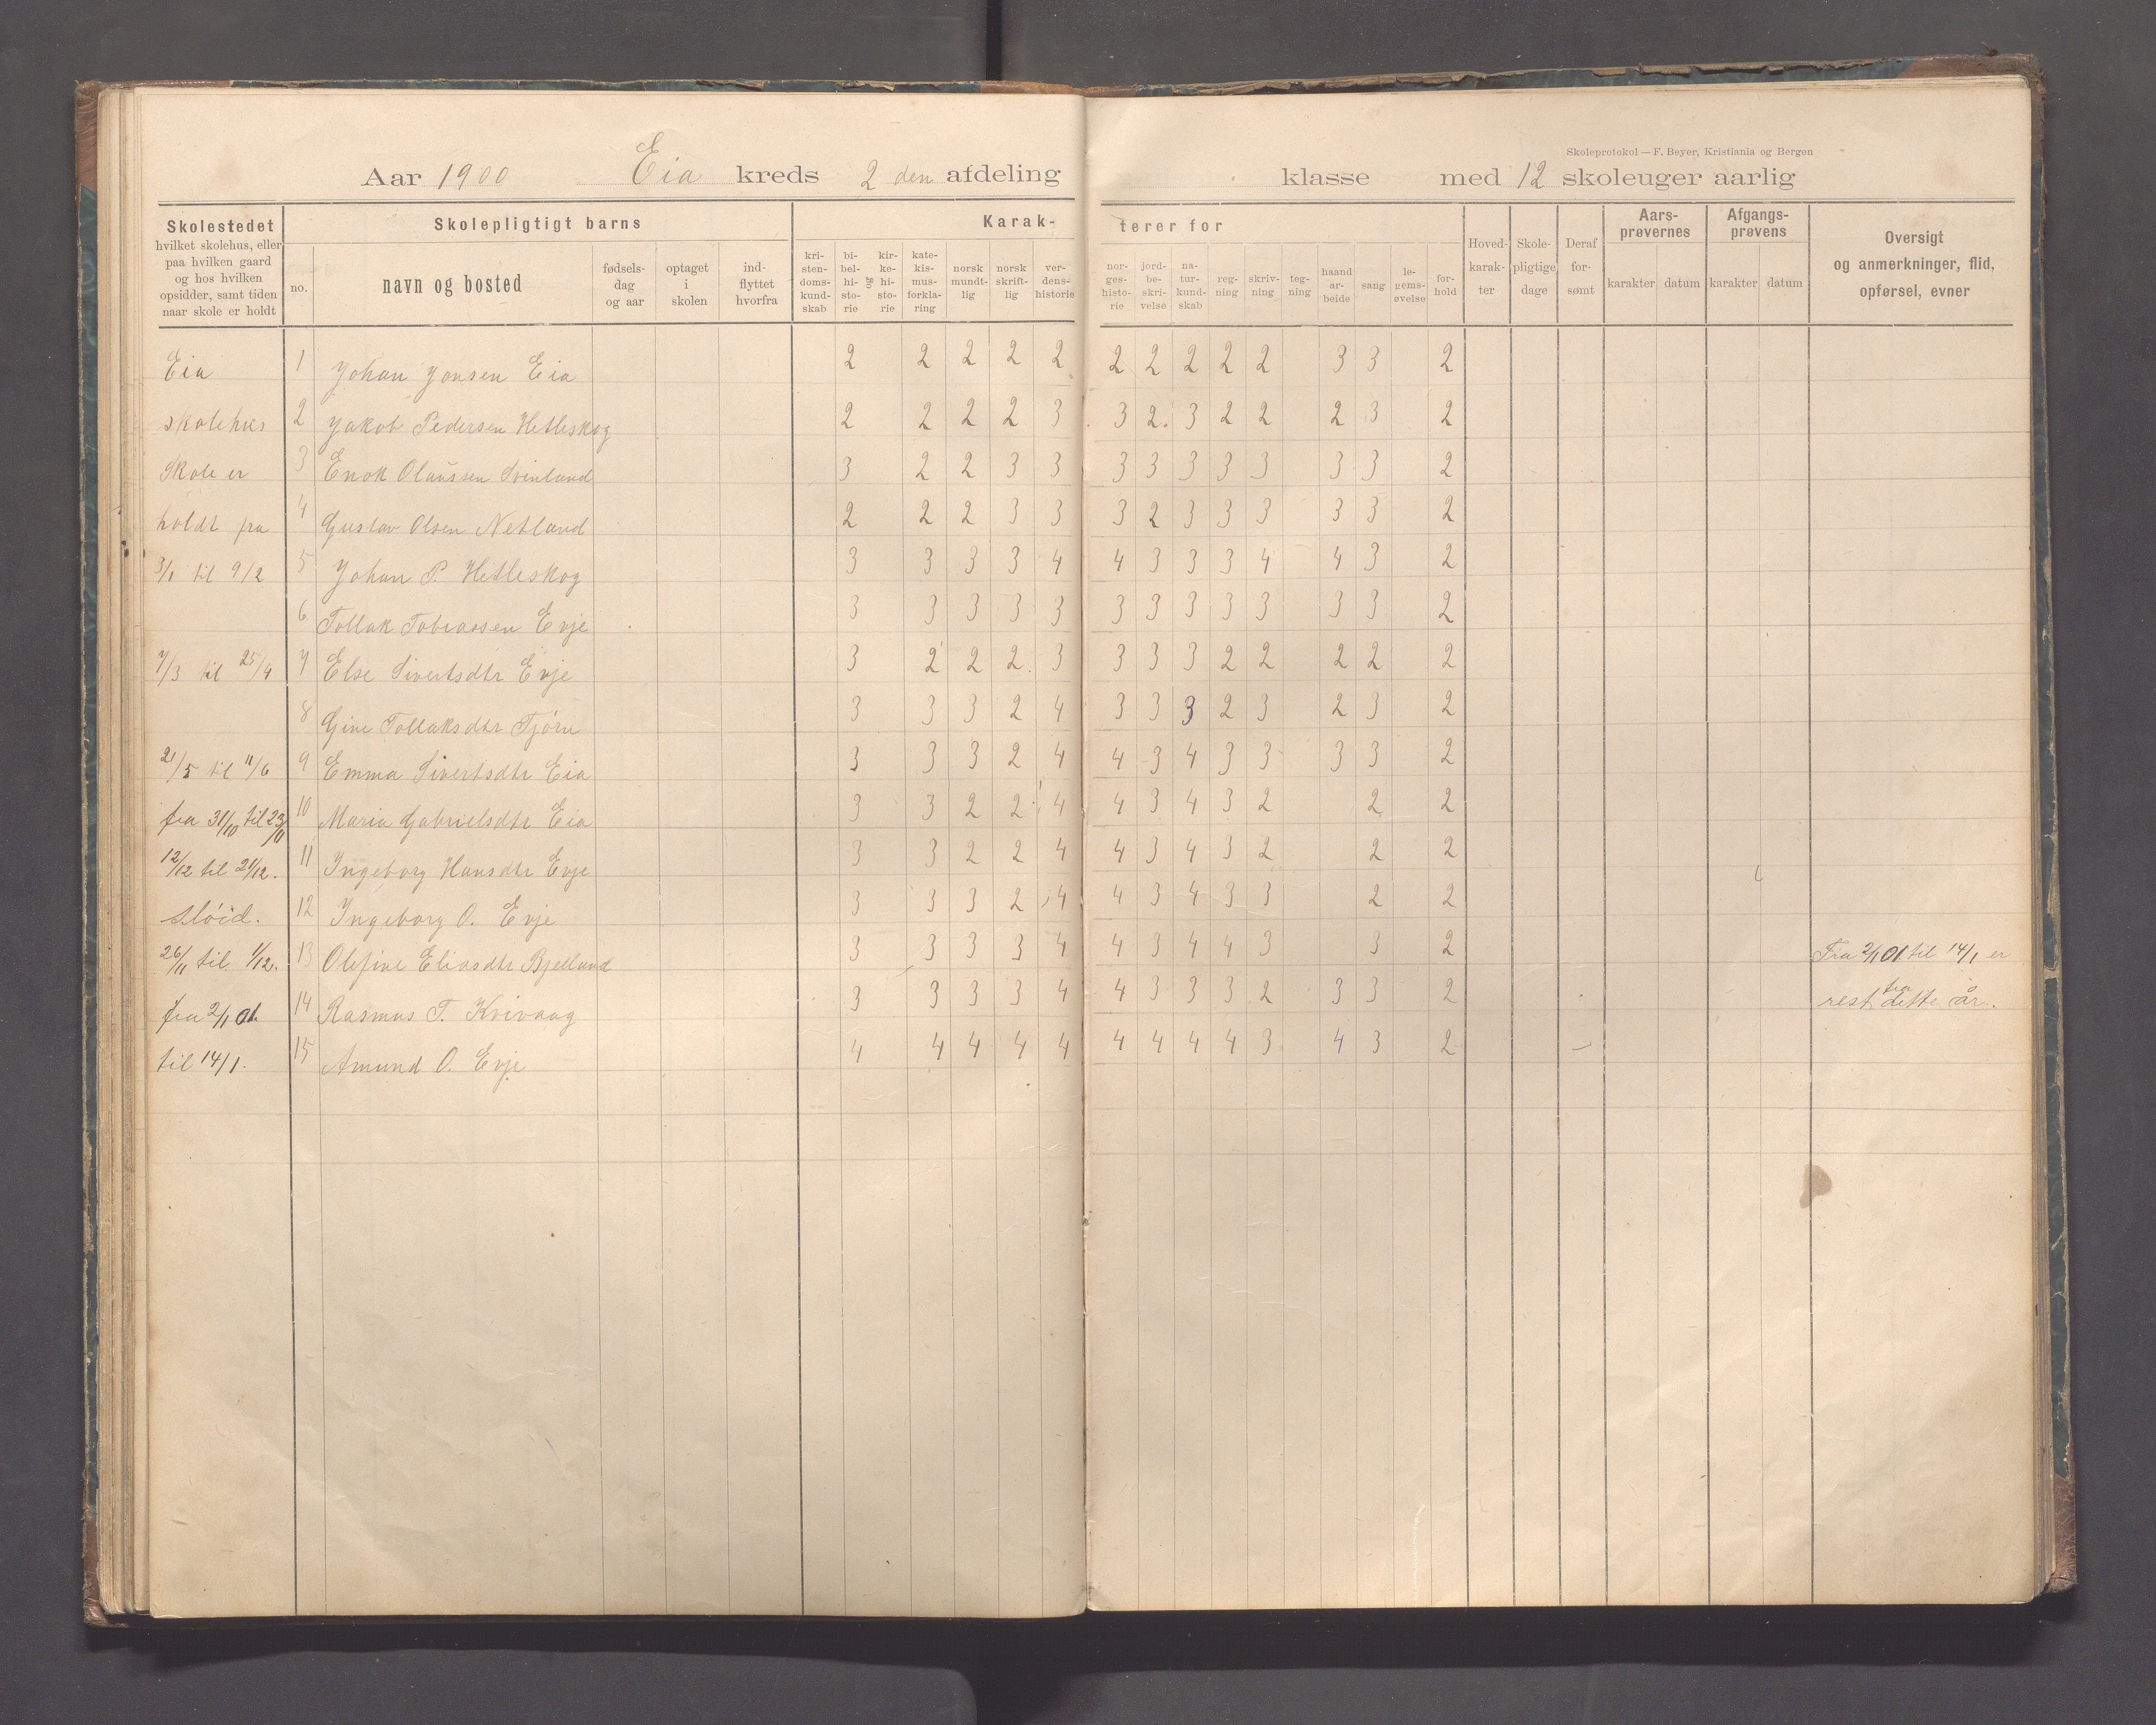 Skoleprotokol — F. Beyer, Kristiania og Bergen
Aar 1900 Eia kreds 2 den afdeling klasse med 12 skoleuger aarlig
Skolestedet
hvilket skolehus, eller
paa hvilken gaard
og hos hvilken
opsidder, samt tiden
naar skole er holdt
Skolepligtigt barns
no.
navn og bosted
fødsels-
dag
og aar
optaget
i
skolen
ind-
flyttet
hvorfra
Karak-
terer for
kri-
sten-
doms-
kund-
skab
bi-
bel-
hi-
sto-
rie
og
kir-
ke-
hi-
sto-
rie
kate-
kis-
mus-
forkla-
ring
norsk
mundt-
lig
norsk
skrift-
lig
ver-
dens-
historie
nor-
ges-
histo-
rie
jord-
be-
skri-
velse
na-
tur-
kund-
skab
reg-
ning
skriv-
ning
teg-
ning
haand
ar-
beide
sang
le-
gems-
øvelse
for-
hold
Hoved-
karak-
ter
Skole-
pligtige
dage
Deraf
for-
sømt
Aars-
prøvernes
karakter datum
Afgangs-
prøvens
karakter datum
Oversigt
og anmerkninger, flid,
opførsel, evner
Eia 1 Johan Jonsen Eia 2 2 2 2 2 2 2 2 2 2 3 3 2
skolehus 2 Jakob Pedersen Hetleskog 2 2 2 2 3 3 2 3 2 2 2 3 2
Skole er 3 Enok Olaussen Svinland 3 2 2 3 3 3 3 3 3 3 3 3 2
holdt fra 4 Gustav Olsen Netland 2 2 2 3 3 3 2 3 3 3 3 3 2
3/1 til 9/2 5 Johan P. Hetleskog 3 3 3 3 4 4 3 3 3 4 4 3 2
6 Tollak Tobiassen Evje 3 3 3 3 3 3 3 3 3 3 3 3 2
7/3 til 25/4 7 Else Sivertsdtr Evje 3 2 2 2 3 3 3 3 2 2 2 2 2
8 Gine Tollaksdtr Tjörn 3 3 3 2 4 3 3 3 2 3 2 3 2
21/5 til 11/6 9 Emma Sivertsdtr Eia 3 3 3 2 4 4 3 4 3 3 3 3 2
fra 31/10 til 23/11 10 Maria Gabrielsdtr Eia 3 3 2 2 4 4 3 4 3 2 2 2
12/12 til 21/12. 11 Ingeborg Hansdtr Evje 3 3 2 2 4 4 3 4 3 2 2 2
slöid. 12 Ingeborg O. Evje 3 3 3 2 4 4 3 4 3 3 2 2
26/11 til 1/12. 13 Olefine Eliasdtr Bjelland 3 3 3 3 4 4 3 4 4 3 3 2 Fra 2/1 01 til 14/1 er
fra 2/1 01 14 Rasmus T. Kvivaag 3 3 3 3 4 4 3 3 3 2 3 3 2 rest fra dette år.
til 14/1. 15 Amund O. Evje 4 4 4 4 4 4 4 4 4 3 4 3 2 —